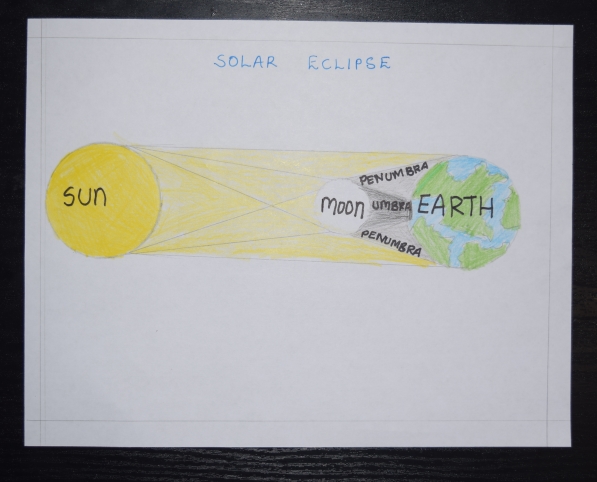 SOLAR ECLIPSE
PENUMBRA
SUN
MOON
UMBRA
EARTH
PENUMBRA